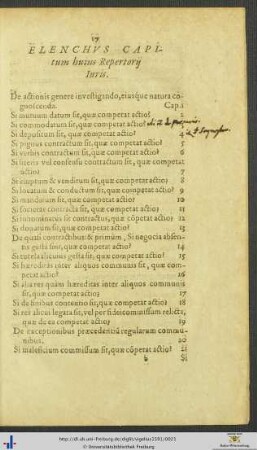 ELENCHVS CAPI-
tum huius Repertorij
Iuris.
De actionis genere inuestigando, eiusque natura co-
gnoscenda. Cap. 1
Si mutuum datum sit, quæ competat actio?
Si commodatum sit, quæ competat actio?
Si depositum sit, quæ competat actio? 4
Si pignus contractum sit, quæ competat actio? 5
Si verbis contractum sit, quæ competat actio? 6
Si literis vel consensu contractum sit, quæ competat
actio? 7
Si emptum & venditum sit, quæ competat actio? 8
Si locatum & conductum sit, quæ competat actio? 9
Si mandatum sit, quæ competat actio? 10
Si societas contracta sit, quæ competat actio? 11
Si innominatus sit contractus, quæ cōpetat actio? 12
Si donatum sit, quæ competat actio? 13
De quasi contractibus & primùm, Si negocia absen-
tis gesta sint, quæ competat actio? 14
Si tutela alicuius gesta sit, quæ competat actio? 15
Si hæreditas inter aliquos communis sit, quæ com-
petat actio? 16
Si alia res quàm hæreditas inter aliquos communis
sit, quæ competat actio? 17
Si de finibus contentio sit, quæ competat actio? 18
Si res alicui legata sit, vel per fideicommissum relicta,
quæ de ea competat actio? 19
De exceptionibus præcedentiū regularum commu-
nibus. 20
Si maleficium commissum sit, quæ cōpetat actio? 21
b Si
http://dl.ub.uni-freiburg.de/diglit/vigelius1581/0021
© Universitätsbibliothek Freiburg